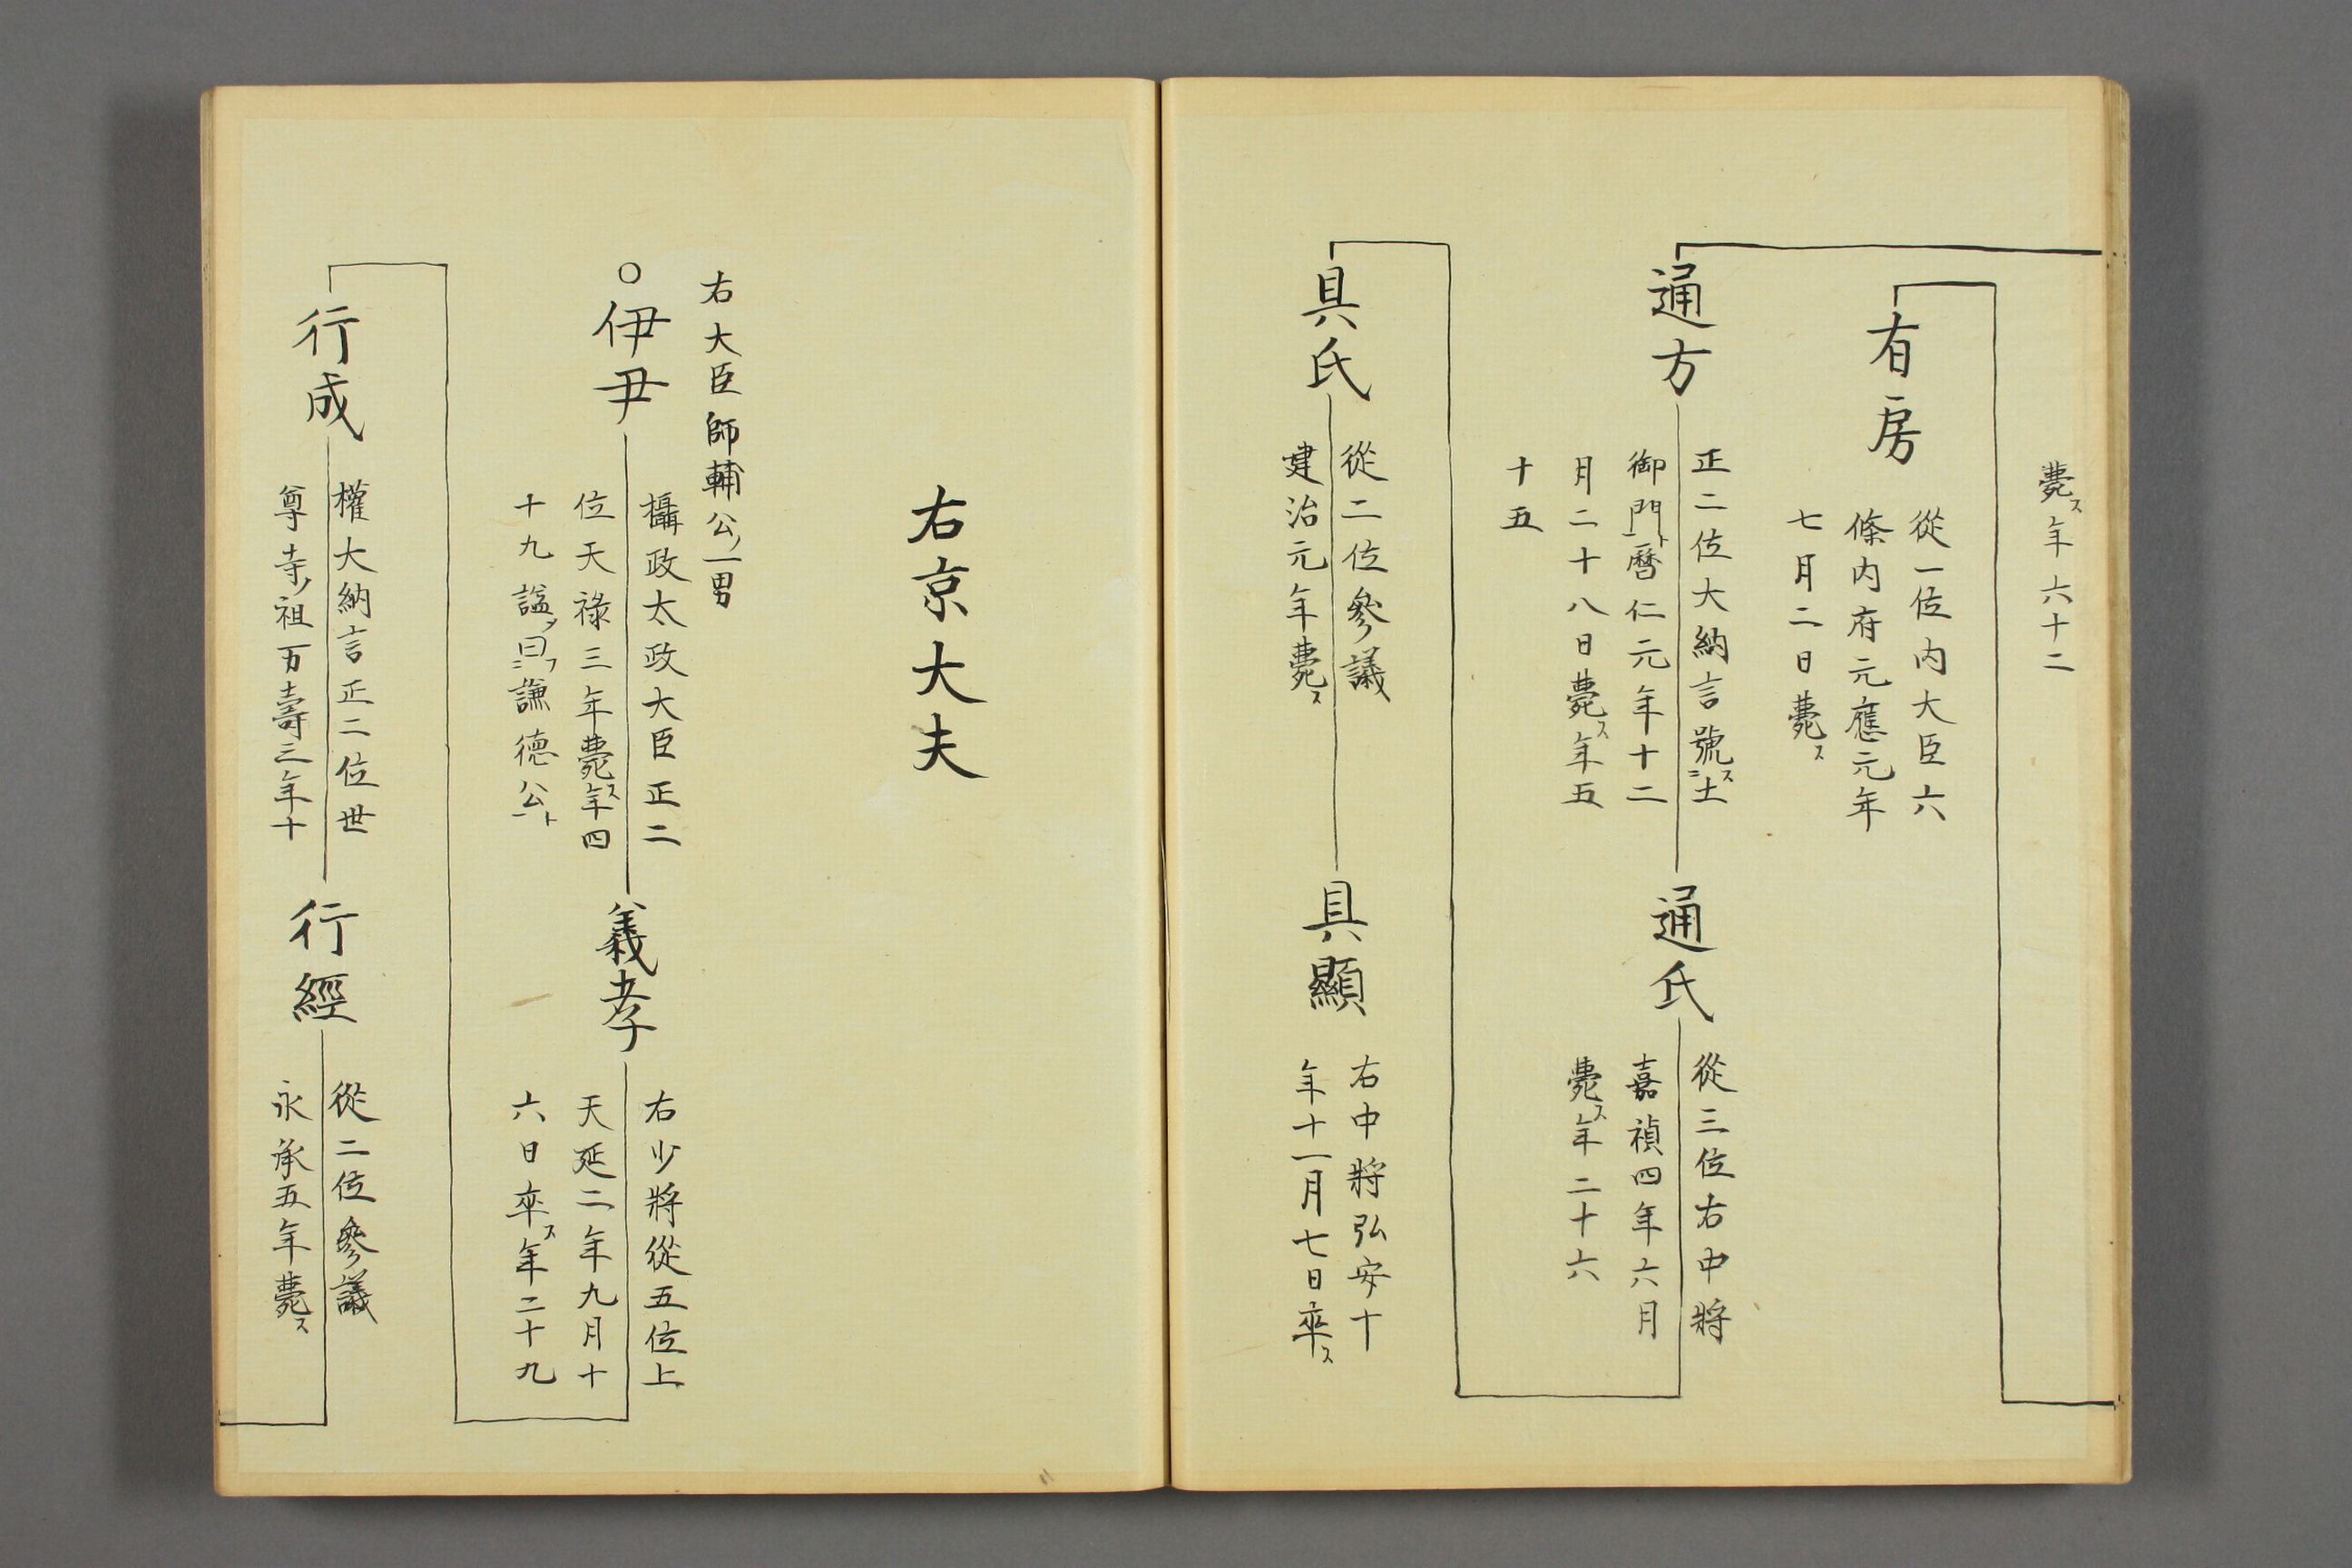 薨ス年六十二
有房
從一位内大臣六
條内府元應元年
七月二日薨ス
通方
正二位大納言號ス二土
御門ト一曆仁元年十二
月二十八日薨ス年五
十五
通氏
從三位右中將
嘉禎四年六月
薨ス年二十六
具氏
從二位參議
建治元年薨ス
具顯
右中將弘安十
年十一月七日卒ス
右京大夫
右大臣師輔公ノ一男
○伊尹
攝政太政大臣正二
位天祿三年薨ス年四
十九謚ヲ曰フ二謙德公ト一
義孝
右少將從五位上
天延二年九月十
六日卒ス年二十九
行成
權大納言正二位世
尊寺ノ祖万壽三年十
行經
從二位參議
永承五年薨ス